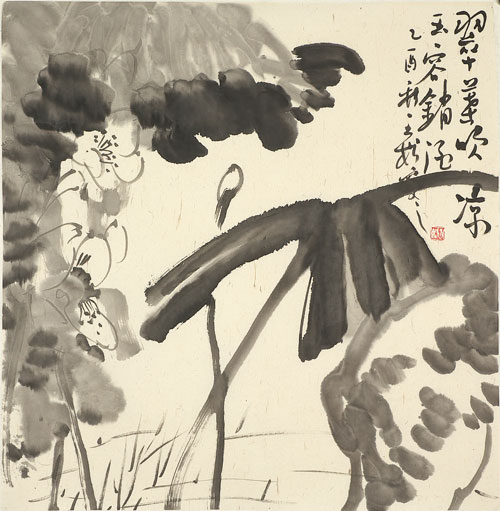 翠葉吹凉
玉容銷酒
乙酉秋